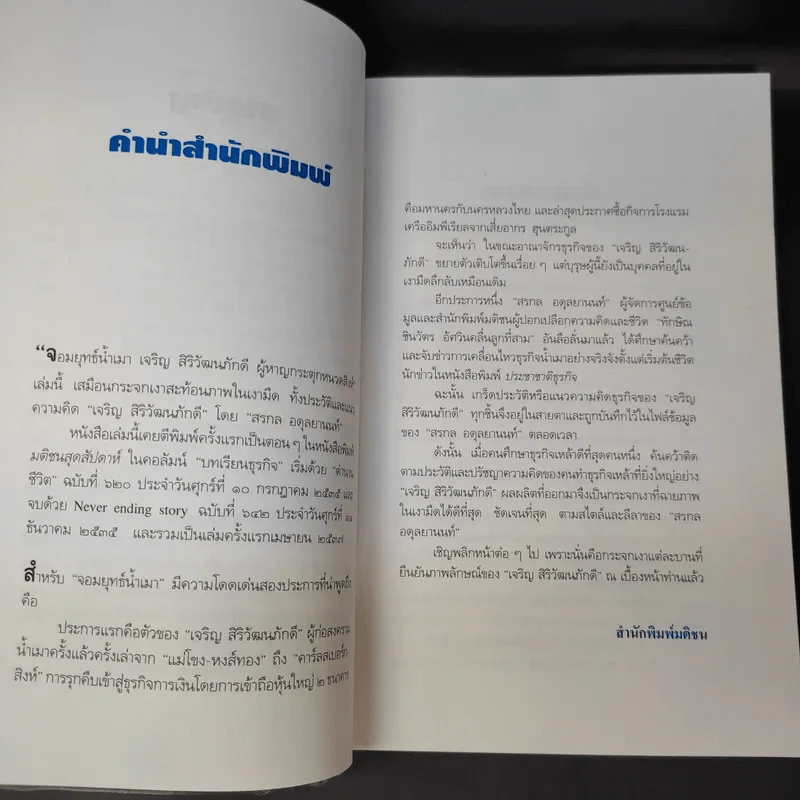 คำนำสำนักพิมพ์
“จอมยุทธ์น้ำเมา เจริญ สิริวัฒนภักดี ผู้หาญกระตุกหนวดสิงห์”
เล่มนี้ เสมือนกระจกเงาสะท้อนภาพในเงามืด ทั้งประวัติและแนว
ความคิด “เจริญ สิริวัฒนภักดี” โดย “สรกล อดุลยานนท์”
หนังสือเล่มนี้เคยตีพิมพ์ครั้งแรกเป็นตอน ๆ ในหนังสือพิมพ์
มติชนสุดสัปดาห์ ในคอลัมน์ “บทเรียนธุรกิจ” เริ่มด้วย “ตำนาน
ชีวิต” ฉบับที่ ๖๒๐ ประจำวันศุกร์ที่ ๑๐ กรกฎาคม ๒๕๓๕ และ
จบด้วย Never ending story ฉบับที่ ๖๔๒ ประจำวันศุกร์ที่ ๑๑
ธันวาคม ๒๕๓๕ และรวมเป็นเล่มครั้งแรกเมษายน ๒๕๓๗
สำหรับ “จอมยุทธ์น้ำเมา” มีความโดดเด่นสองประการที่น่าพูดถึง
คือ
ประการแรกคือตัวของ “เจริญ สิริวัฒนภักดี” ผู้ก่อสงคราม
น้ำเมาครั้งแล้วครั้งเล่าจาก “แม่โขง-หงส์ทอง” ถึง “คาร์ลสเบอร์ก-
สิงห์” การรุกคืบเข้าสู่ธุรกิจการเงินโดยการเข้าถือหุ้นใหญ่ ๒ ธนาคาร
คือมหานครกับนครหลวงไทย และล่าสุดประกาศซื้อกิจการโรงแรม
เครืออิมพีเรียลจากเสี่ยอากร ฮุนตระกูล
จะเห็นว่า ในขณะอาณาจักรธุรกิจของ “เจริญ สิริวัฒน-
ภักดี” ขยายตัวเติบโตขึ้นเรื่อย ๆ แต่บุรุษผู้นี้ยังเป็นบุคคลที่อยู่ใน
เงามืดลึกลับเหมือนเดิม
อีกประการหนึ่ง “สรกล อดุลยานนท์” ผู้จัดการศูนย์ข้อ
มูลและสำนักพิมพ์มติชนผู้ปอกเปลือกความคิดและชีวิต “ทักษิณ
ชินวัตร อัศวินคลื่นลูกที่สาม” อันลือลั่นมาแล้ว ได้ศึกษาค้นคว้า
และจับข่าวการเคลื่อนไหวธุรกิจน้ำเมาอย่างจริงจังตั้งแต่เริ่มต้นชีวิต
นักข่าวในหนังสือพิมพ์ ประชาชาติธุรกิจ
ฉะนั้น เกร็ดประวัติหรือแนวความคิดธุรกิจของ “เจริญ
สิริวัฒนภักดี” ทุกชิ้นจึงอยู่ในสายตาและถูกบันทึกไว้ในไฟล์ข้อมูล
ของ “สรกล อดุลยานนท์” ตลอดเวลา
ดังนั้น เมื่อคนศึกษาธุรกิจเหล้าดีที่สุดคนหนึ่ง ค้นคว้าติด
ตามประวัติและปรัชญาความคิดของคนทำธุรกิจเหล้าที่ยิ่งใหญ่อย่าง
“เจริญ สิริวัฒนภักดี” ผลผลิตที่ออกมาจึงเป็นกระจกเงาที่ฉายภาพ
ในเงามืดได้ดีที่สุด ชัดเจนที่สุด ตามสไตล์และลีลาของ “สรกล
อดุลยานนท์”
เชิญพลิกหน้าต่อ ๆ ไป เพราะนั่นคือกระจกเงาแต่ละบานที่
ยืนยันภาพลักษณ์ของ “เจริญ สิริวัฒนภักดี” ณ เบื้องหน้าท่านแล้ว
สำนักพิมพ์มติชน